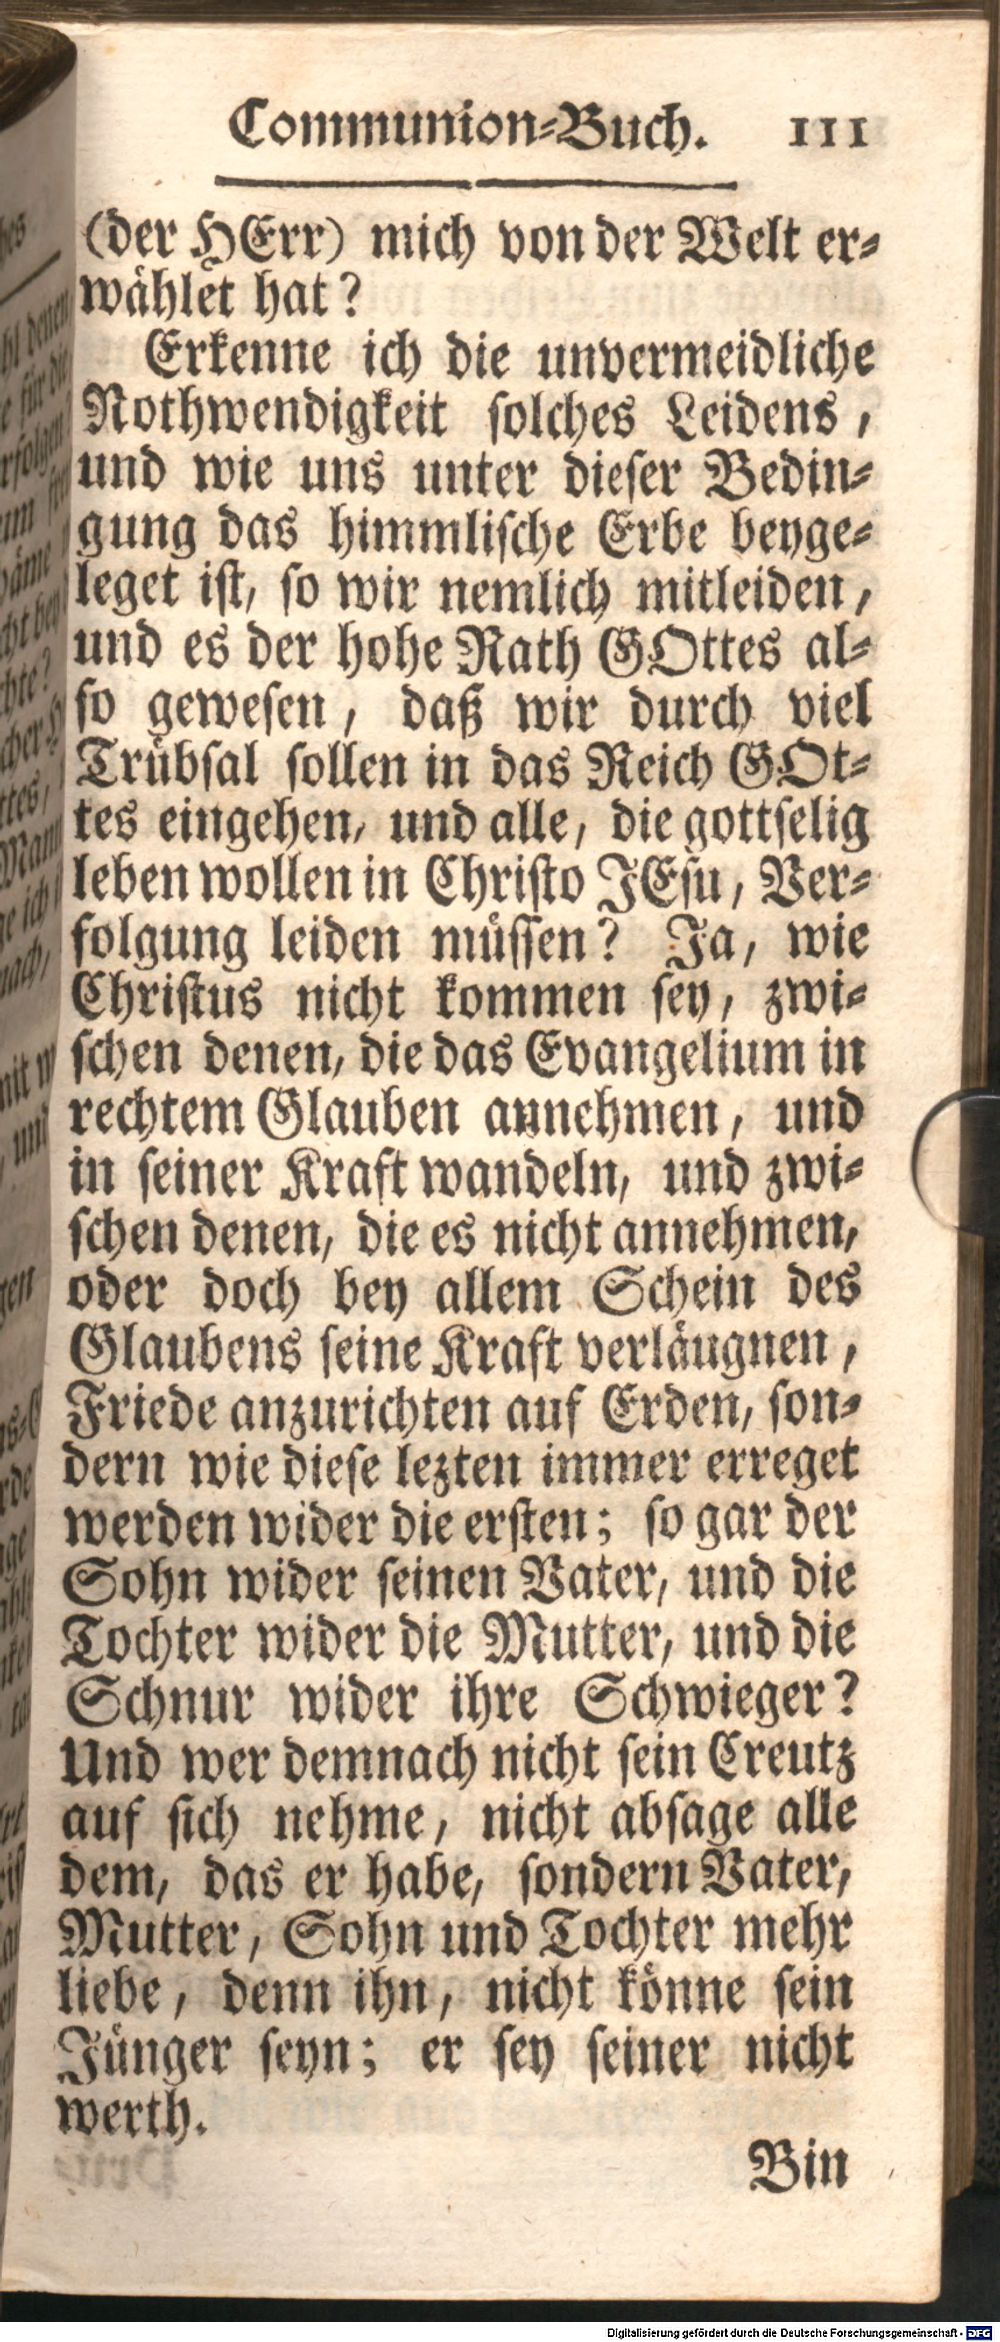 Communion-Buch. 111
(der HErr) mich von der Welt er-
wählet hat?
Erkenne ich die unvermeidliche
Nothwendigkeit solches Leidens,
und wie uns unter dieser Bedin-
gung das himmlische Erbe beyge-
leget ist, so wir nemlich mitleiden,
und es der hohe Rath GOttes al-
so gewesen, daß wir durch viel
Trübsal sollen in das Reich GOt-
tes eingehen, und alle, die gottselig
leben wollen in Christo JEsu, Ver-
folgung leiden müssen? Ja, wie
Christus nicht kommen sey, zwi-
schen denen, die das Evangelium in
rechtem Glauben annehmen, und
in seiner Kraft wandeln, und zwi-
schen denen, die es nicht annehmen,
oder doch bey allem Schein des
Glaubens seine Kraft verläugnen,
Friede anzurichten auf Erden, son-
dern wie diese lezten immer erreget
werden wider die ersten; so gar der
Sohn wider seinen Vater, und die
Tochter wider die Mutter, und die
Schnur wider ihre Schwieger?
Und wer demnach nicht sein Creutz
auf sich nehme, nicht absage alle
dem, das er habe, sondern Vater,
Mutter, Sohn und Tochter mehr
liebe, denn ihn, nicht könne sein
Jünger seyn; er sey seiner nicht
werth.
Bin
Digitalisierung gefördert durch die Deutsche Forschungsgemeinschaft - DFG